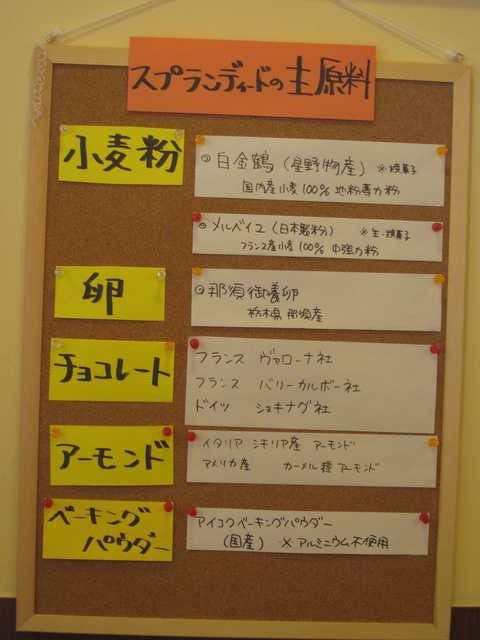 スプランディードの主原料
小麦粉
◎白金鶴(星野物産) ※焼菓子
国内産小麦100% 地粉薄力粉
◎メルベイユ(日本製粉) ※生・焼菓子
フランス産小麦100% 中強力粉
卵
◎那須御養卵
栃木県 那須産
チョコレート
フランス ヴァローナ社
フランス バリーカルボー社
ドイツ ショキナグ社
アーモンド
イタリア シチリア産 アーモンド
アメリカ産 カーメル種 アーモンド
ベーキング
パウダー
アイコクベーキングパウダー
(国産) ※アルミニウム不使用